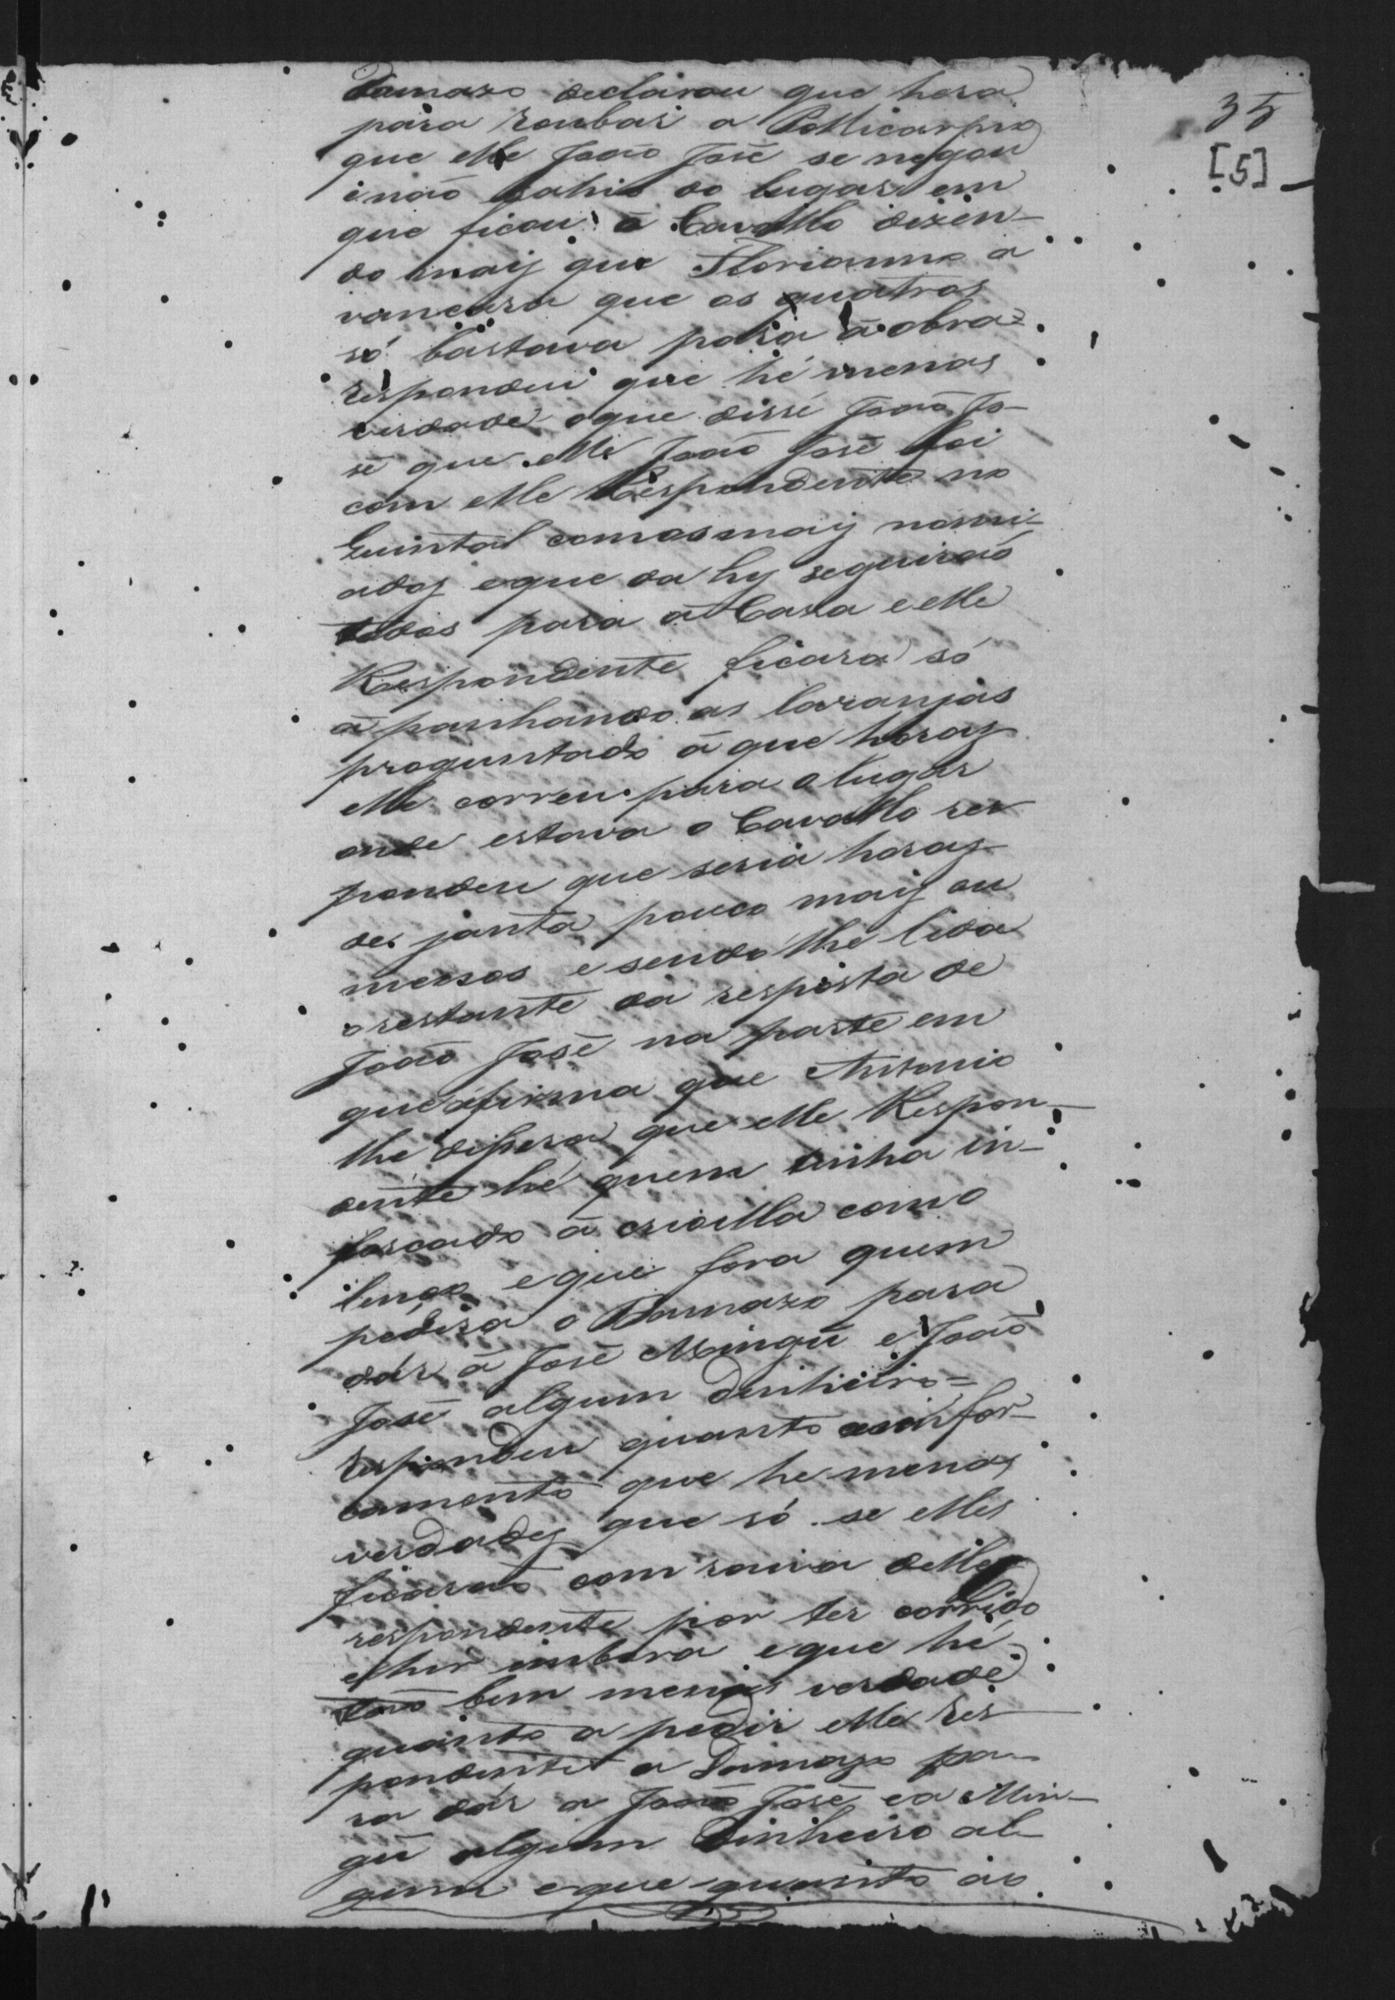 35
[5]
Damazo declarou que hera
para roubar a Pollicarpio
que elle João José se negou
i não sahio do lugar em
que ficou á Cavallo dizen-
do maiz que Florianno a
vançara que os quatros
só bastava para á obra=
respondeu que hé menos
verdade oque disse João Jo-
sé que elle João José foi
com elle Respondente no
Quintal comos maiz nomi-
ados eque da hy seguirão
todos para á Casa e elle
Respondente ficara só
á panhando as laranjas
proguntado á que horas
elle correu para o lugar
onde estava o Cavallo res
pondeu que seria horas
de janta pouco maiz ou
menos e sendo lhe lida
o restante da resposta de
João José na parte em
que afirma que Antonio
lhe dissera que elle Respon-
dente hé quem tinha in-
forcado á crioilla como
lenço eque fora quem
pedira o Damazo para
dár á José Mingú e João
José algum dinheiro=
respondeu quanto infor-
camento que he menos
verdades que só se elles
ficarão com raiva delle
respondente por ter corrido
e hir imbora eque hé
tão bem menos verdade
quanto a pedir elle Res
pondente a Damazo pa-
ra dár a João José ea Min-
gú algum Dinheiro al-
gum eque quanto ao